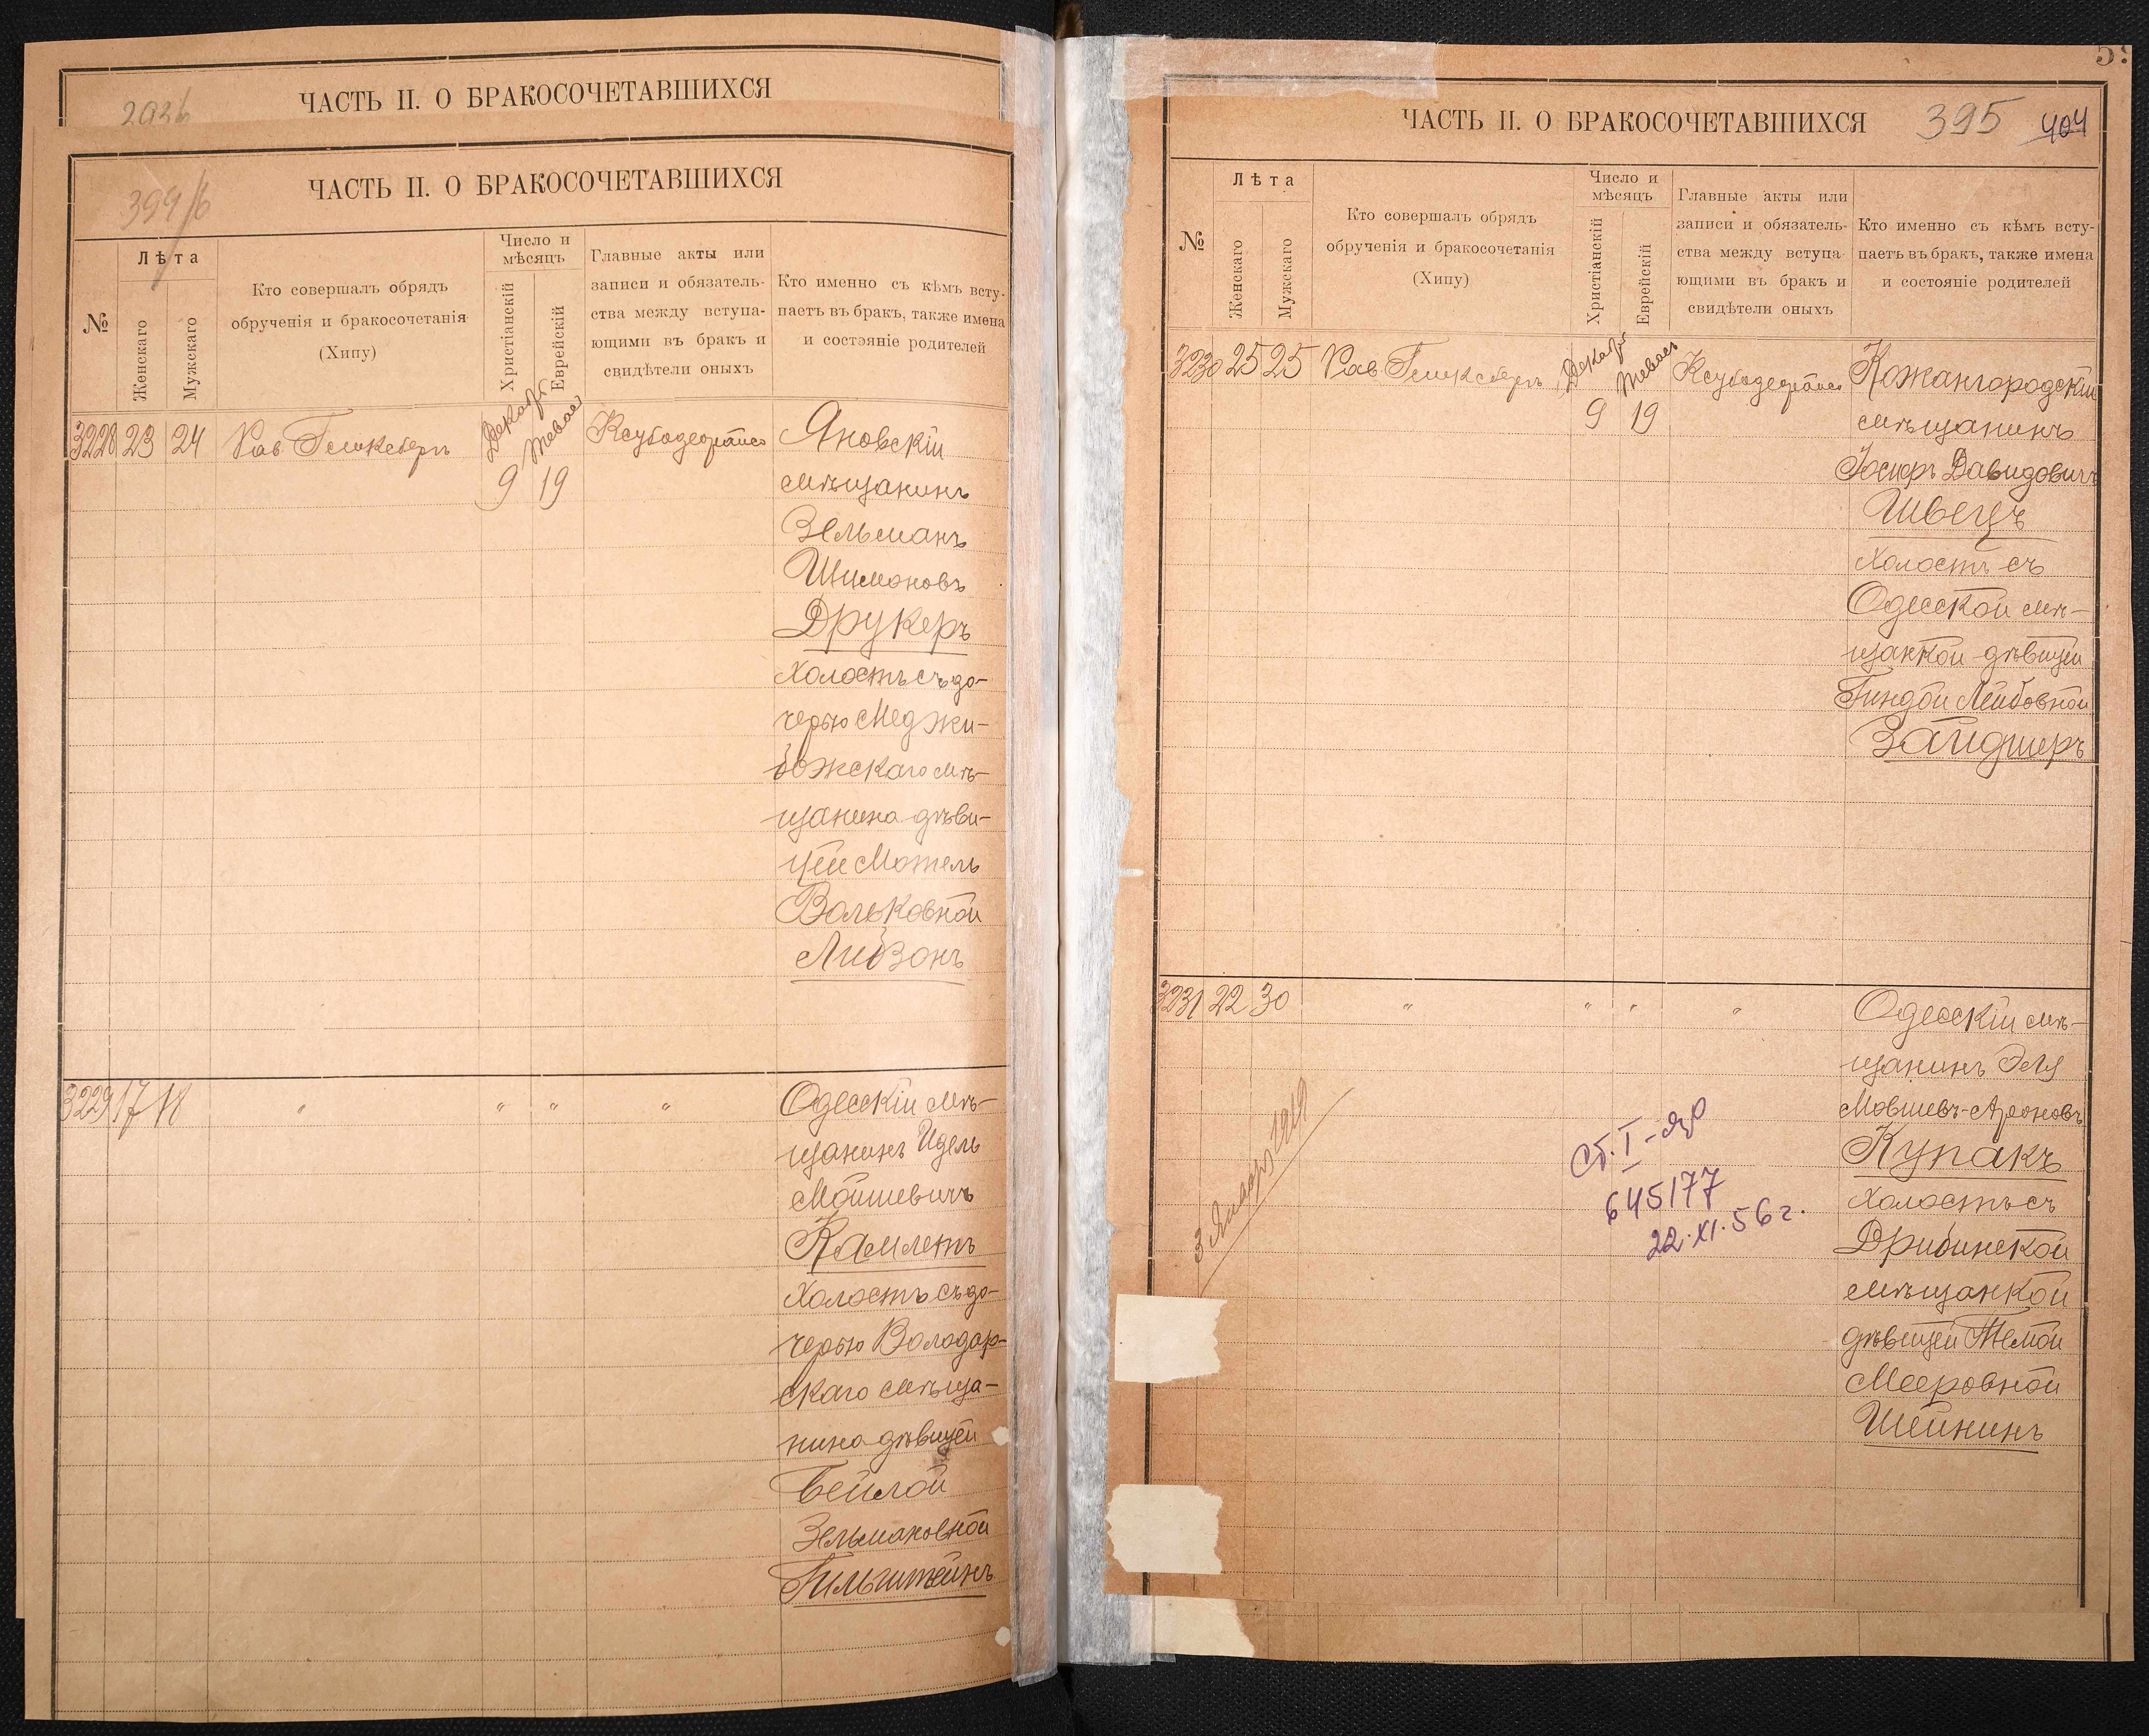 ЧАСТЬ II. О БРАКОСОЧЕТАВШИХСЯ
ЧАСТЬ II. О БРАКОСОЧЕТАВШИХСЯ
394/б
№
Лѣта
Женскаго
Мужскаго
Кто совершалъ обрядъ
обрученія и бракосочетанія
(Хипу)
Число и
мѣсяцъ
Христіанскій
Еврейскій
Главные акты или
записи и обязатель-
ства между вступа-
ющими въ бракъ и
свидѣтели оныхъ
Кто именно съ кѣмъ всту-
паетъ въ бракъ, также имена
и состояніе родителей
3228 23 24 Рав.
9 19
Яновскій
мѣщанинъ
Зельманъ
Шимоновъ
Друкеръ
холостъ съ до-
черью Меджи-
божскаго мѣ-
щанина дѣви-
цей Мотель
Вольковной
Ливзонъ
3229 17 18 " " " "
Одесскій мѣ-
щанинъ Идель
Мойшевичъ
Камлетъ
холостъ съ до-
черью Володар-
скаго мѣща-
нина дѣвицей
Бейлой
Зельмановной
Гильштейнъ
ЧАСТЬ II. О БРАКОСОЧЕТАВШИХСЯ
395 404
№
Лѣта
Женскаго
Мужскаго
Кто совершалъ обрядъ
обрученія и бракосочетанія
(Хипу)
Число и
мѣсяцъ
Христіанскій
Еврейскій
Главные акты или
записи и обязатель-
ства между вступа-
ющими въ бракъ и
свидѣтели оныхъ
Кто именно съ кѣмъ всту-
паетъ въ бракъ, также имена
и состояніе родителей
3230 25 25 Рав.
9 19
Кожангородскій
мѣщанинъ
Іосифъ Давидовичъ
Швецъ
холостъ съ
Одесской мѣ-
щанкой дѣвицей
Гиндой Лейбовной
Зайдшеръ
3231 22 30 " " " "
Одесскій мѣ-
щанинъ Эля
Мовшевъ-Ароновъ
Купакъ
холостъ съ
Дрибинской
мѣщанкой
дѣвицей Темой
Мееровной
Шейнинъ
3 Января 1919
645177
22.XI.56 г.